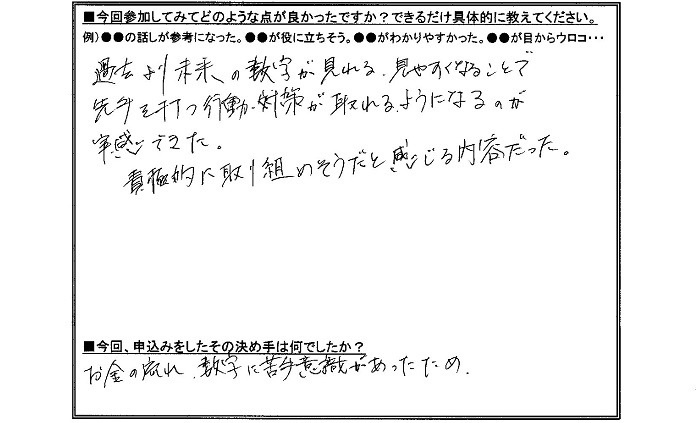 ■今回参加してみてどのような点が良かったですか？できるだけ具体的に教えてください。
例）●●の話しが参考になった。●●が役に立ちそう。●●がわかりやすかった。●●が目からウロコ・・・
過去より未来の数字が見れる、見やすくなることで
先手を打つ行動・対策が取れるようになるのが
実感できた。
責極的に取り組めそうだと感じる内容だった。
■今回、申込みをしたその決め手は何でしたか？
お金の流れ、数字に苦手意識があったため。